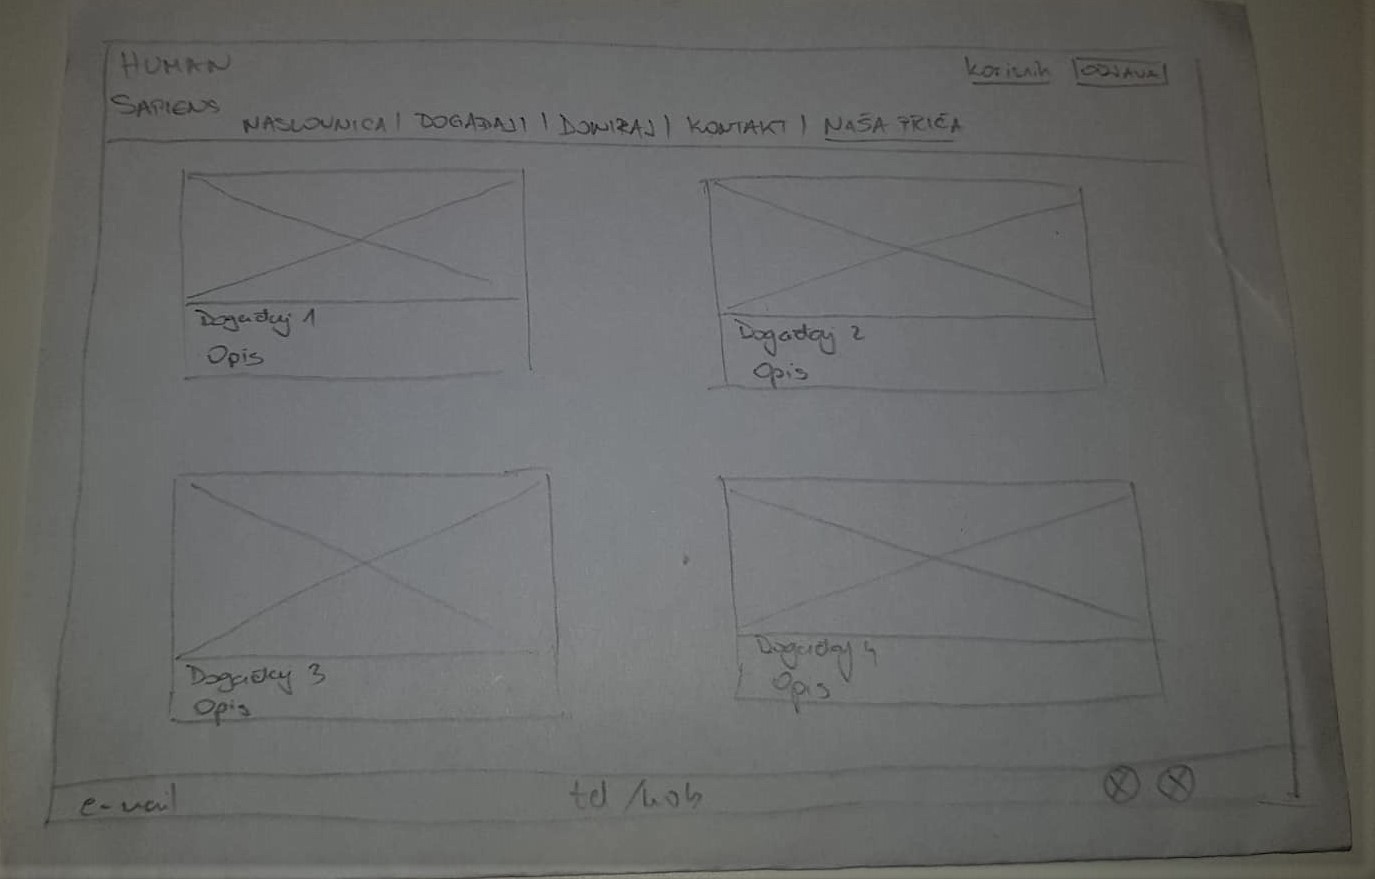 HUMAN
SAPIENS
Korisnik ODJAVA
NASLOVNICA | DOGAĐAJI | DONIRAJ | KONTAKT | NAŠA PRIČA
Događaj 1
Opis
Događaj 2
Opis
Događaj 3
Opis
Događaj 4
Opis
e-mail tel /mob